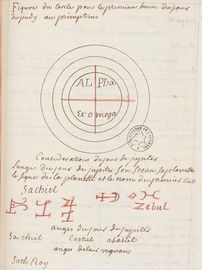 Figure du cercle pour la premiere heure du jour
du jeudy au printemps
ALPha
et omega
Considerations du jour de jupiter
l'anges du jour de jupiter son sceau sa planette
le signe de la planette et le nom du premier ciel
Sachiel
Zebul
anges du jour de jupiter
Sachiel Castiel asasiel
anges de l'air regnans
Suth Roy